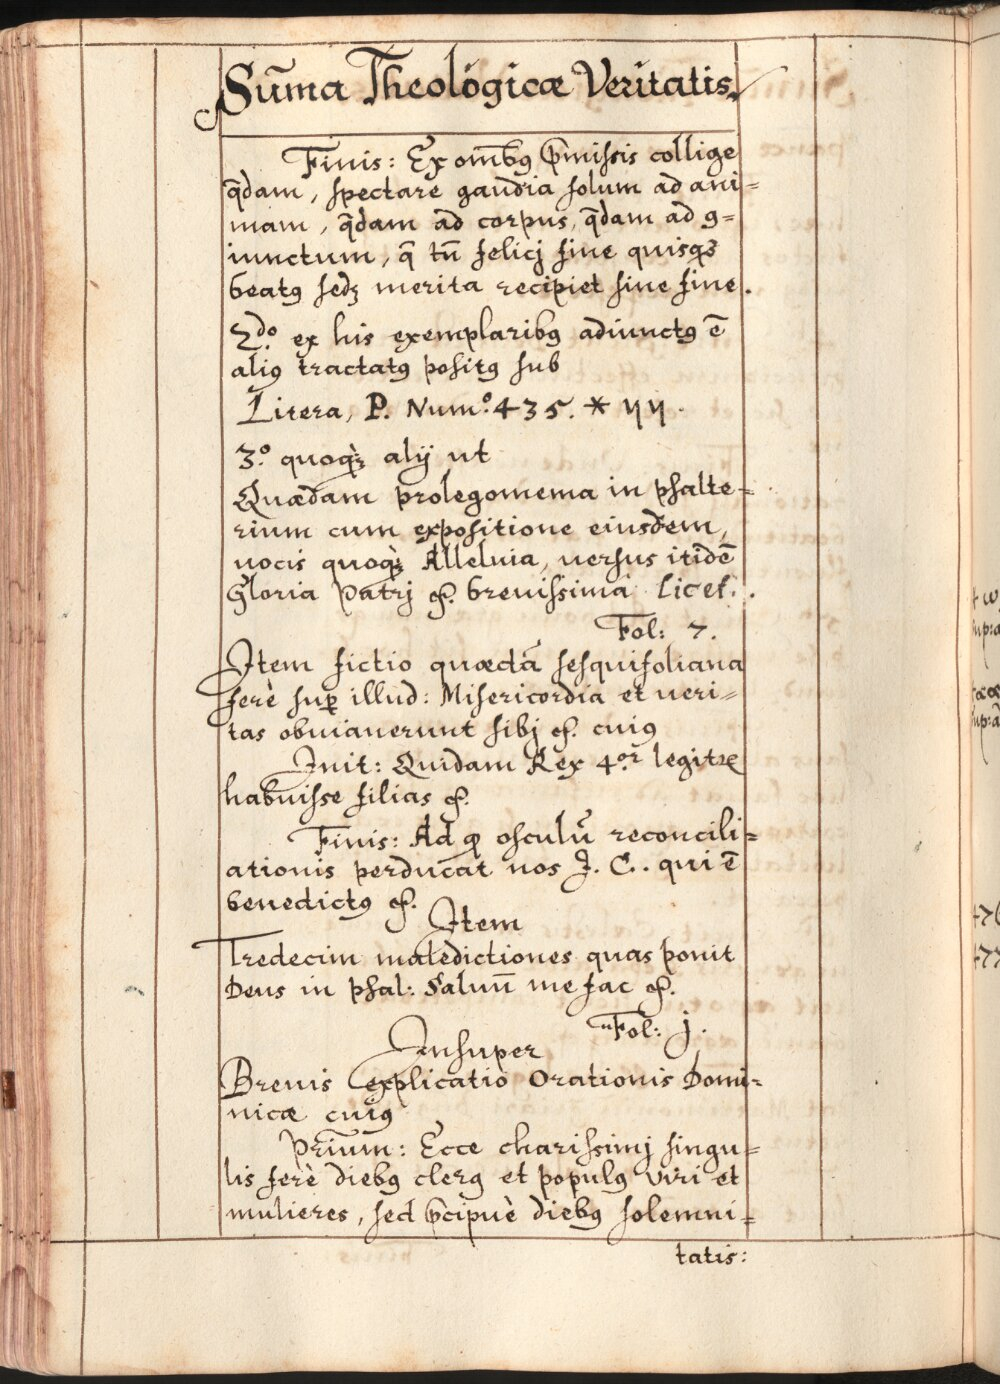 Suma̅ Theologicæ Veritatis.
Finis: Ex om̅bꝰ p̅missis collige
q̅dam, spectare gaudia solum ad ani=
mam, q̅dam ad corpus, q̅dam ad 9=
iunctum, q̅ tn̅ felicj fine quisqꝫ
beatꝰ sedꝫ merita recipiet sine fine.
2do. ex his exemplaribꝰ adiunctꝰ e̅
aliꝰ tractatꝰ positꝰ sub
Litera, P. Num.o 435. * yy.
3.o quoqꝫ alÿ ut
Quædam prolegomema in psalte=
rium cum expositione eiusdem,
uocis quoqꝫ Alleluia, uersus itide̅
Gloria Patrj &. breuissima licet.
Fol: 7.
Item fictio quæda̅ sesquifoliana
ferè suꝑ illud: Misericordia et ueri=
tas obuiauerunt sibj &. cuiꝰ
Init: Quidam Rex 4.or legitꝛ
habuisse filias &.
Finis: Ad qꝫ osculu̅ reconcili=
ationis perducat nos J. C. . qui e̅
benedictꝰ &.
Item
Tredecim maledictiones quas ponit
Deus in psal: Saluu̅ me fac &.
Fol: j.
Insuper
Breuis explicatio Orationis Domi=
nicæ cuiꝰ
Prium̅: Ecce charissimj singu=
lis ferè diebꝰ clerꝰ et populꝰ viri et
mulieres, sed p̅cipuè diebꝰ solemni=
tatis: